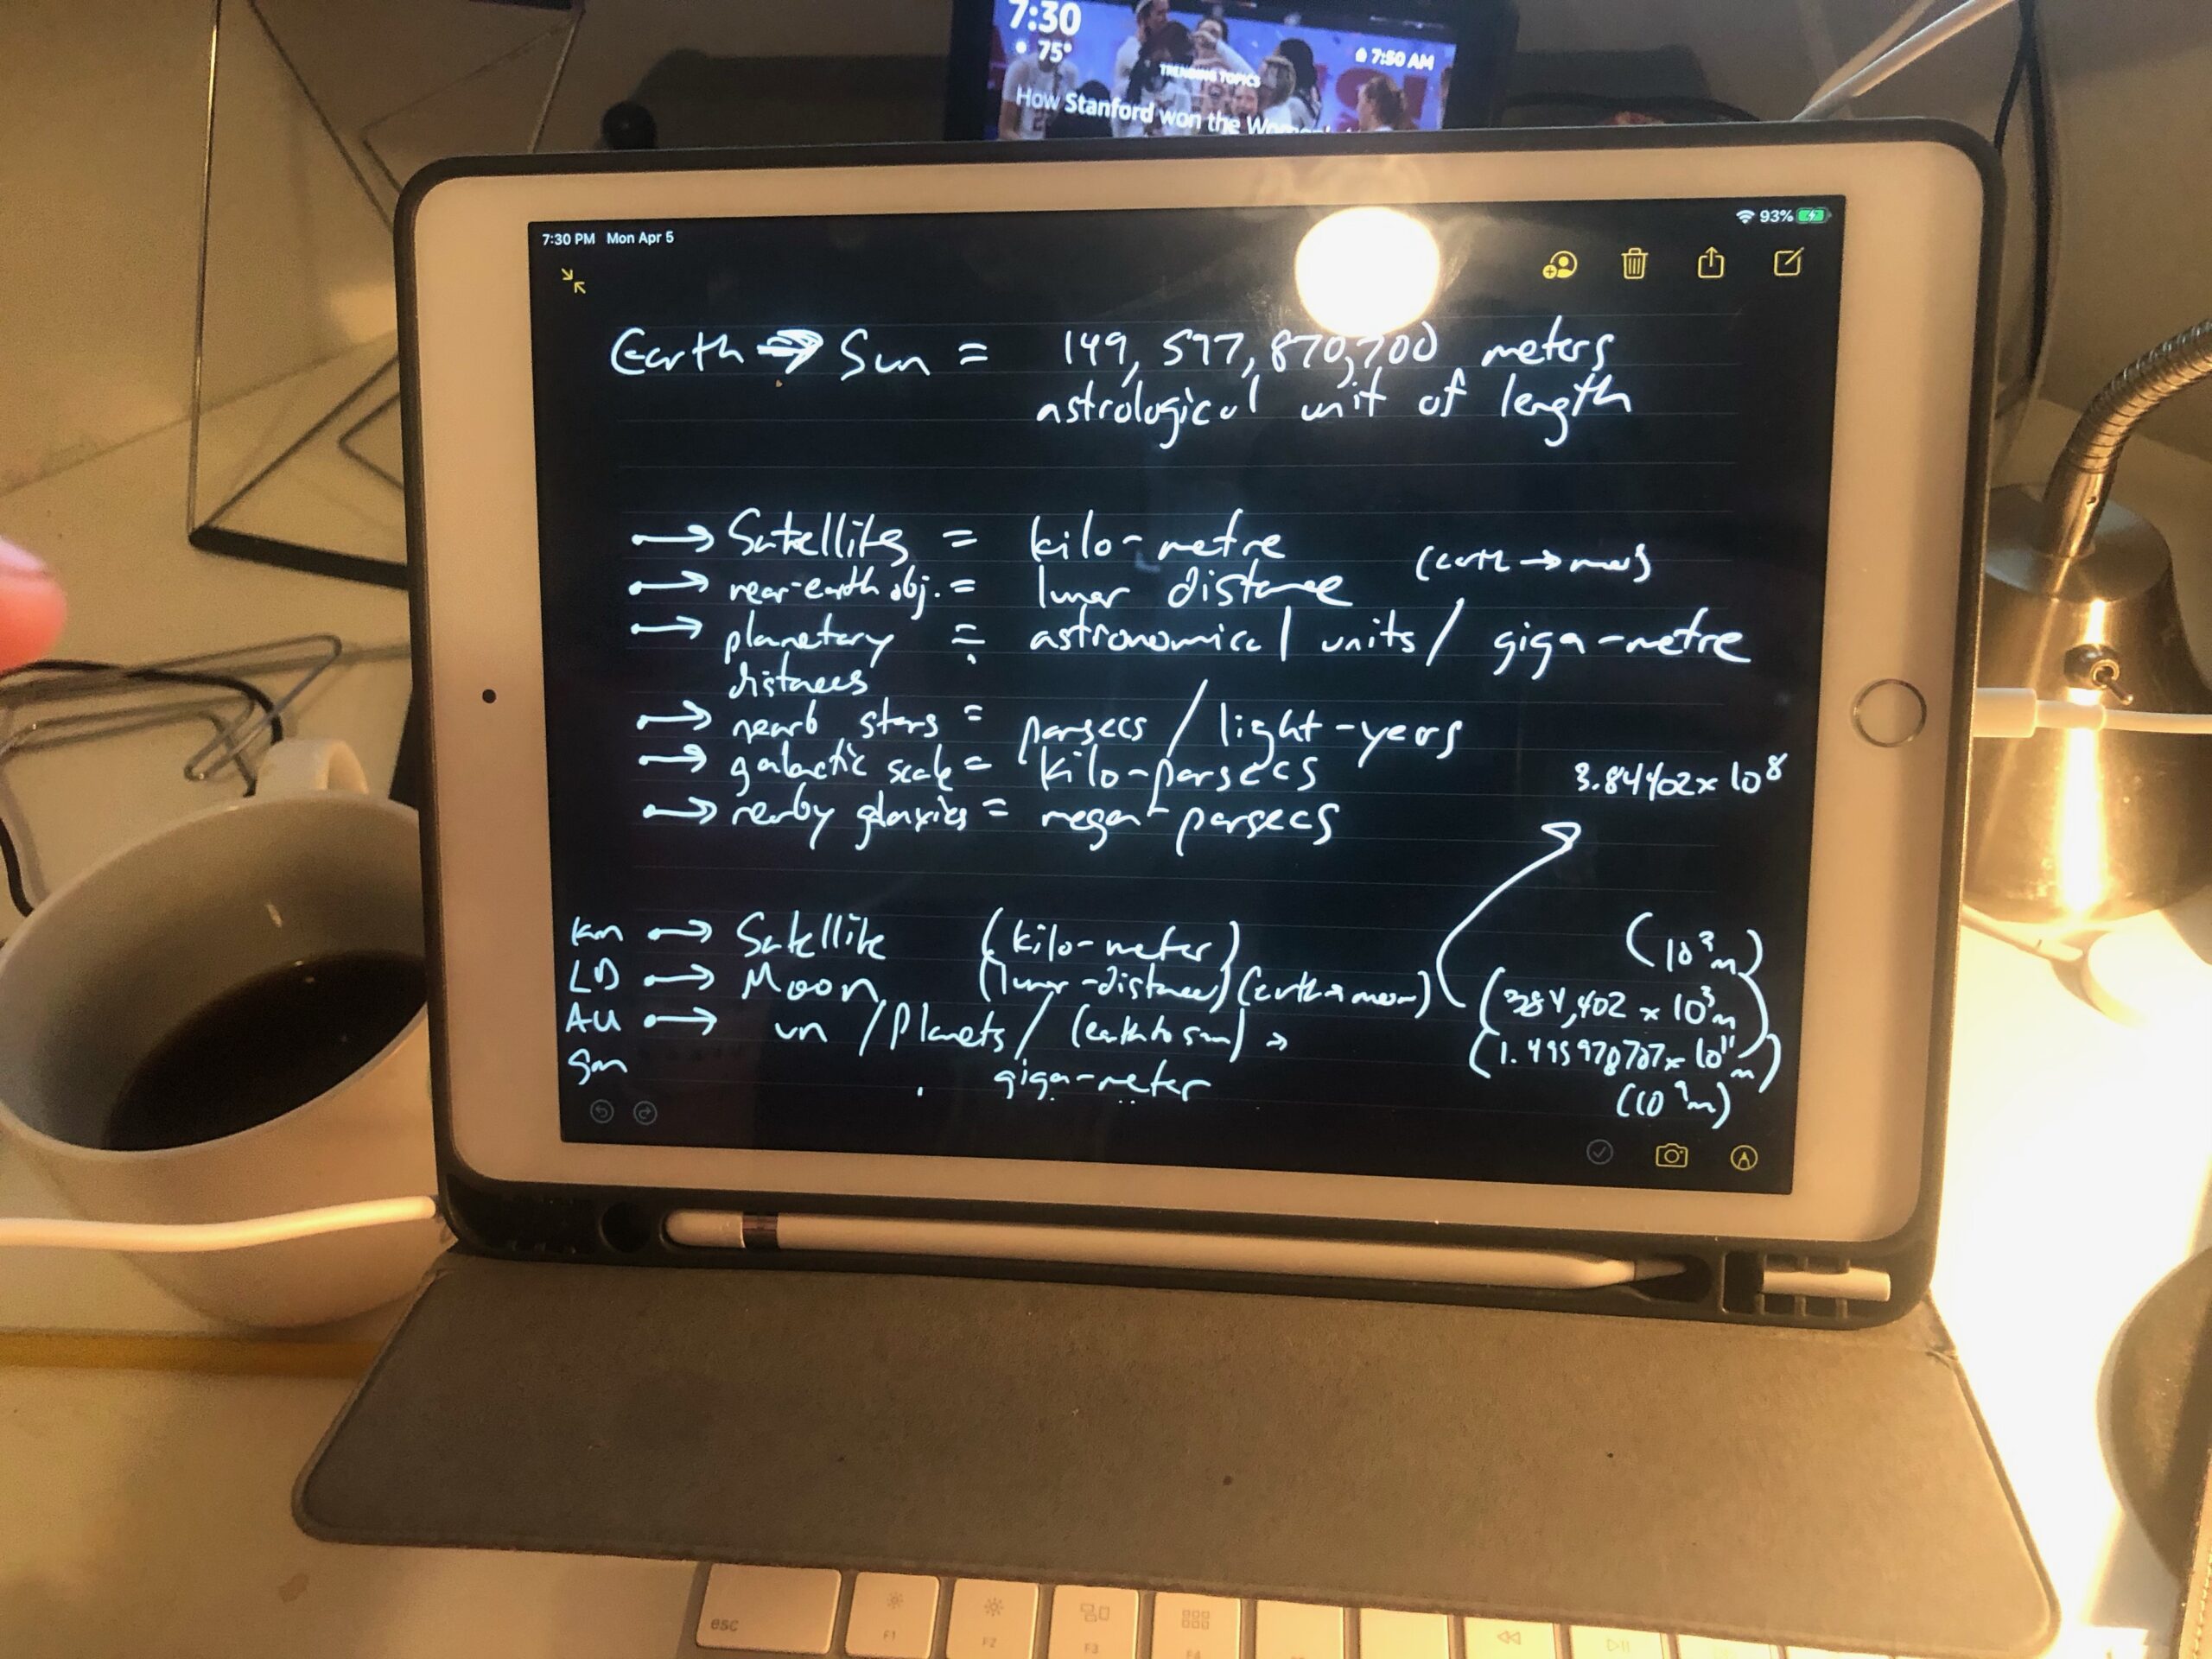 7:30
75°
7:50 AM
TRENDING TOPICS
How Stanford won the Women's
7:30 PM Mon Apr 5
93%
Earth → Sun = 149,597,870,700 meters
astrological unit of length
→ Satellites = kilo-metre
→ near-earth obj. = lunar distance (earth → moon)
→ planetary = astronomical units / giga-metre
distances
→ nearb stars = parsecs / light-years
→ galactic scale = kilo-parsecs
→ nearby galaxies = mega-parsecs
3.84402 x 10⁸
km → Satellite (kilo-meter) (10³m)
LD → Moon (lunar-distance) (earth → moon) (384,402 x 10³m)
AU → un / planets / (earth to sun) → (1.495978707 x 10¹¹m)
gm giga-meter (10⁹m)
esc
F1
F2
F3
F4